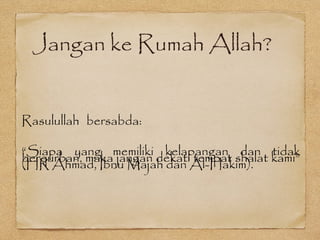 Jangan ke Rumah Allah?
Rasulullah bersabda:
“Siapa yang memiliki kelapangan dan tidak
berqurban, maka jangan dekati tempat shalat kami”
(HR Ahmad, Ibnu Majah dan Al-Hakim).